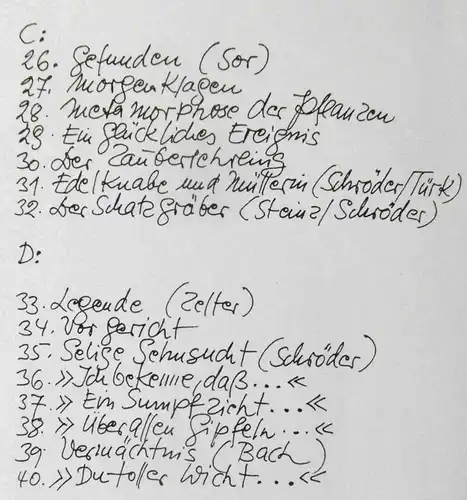 C:
26. Gefunden (Sor)
27. Morgenklagen
28. Metamorphose der Pflanzen
29. Ein glückliches Ereignis
30. Der Zauberlehrling
31. Edelknabe und Müllerin (Schröder/Türk)
32. Der Schatzgräber (Steinz/Schröder)
D:
33. Legende (Zelter)
34. Vor Gericht
35. Selige Sehnsucht (Schröder)
36. »Ich bekenne, daß...«
37. »Ein Sumpf zieht...«
38. »Über allen Gipfeln...«
39. Vermächtnis (Bach)
40. »Du toller Wicht...«